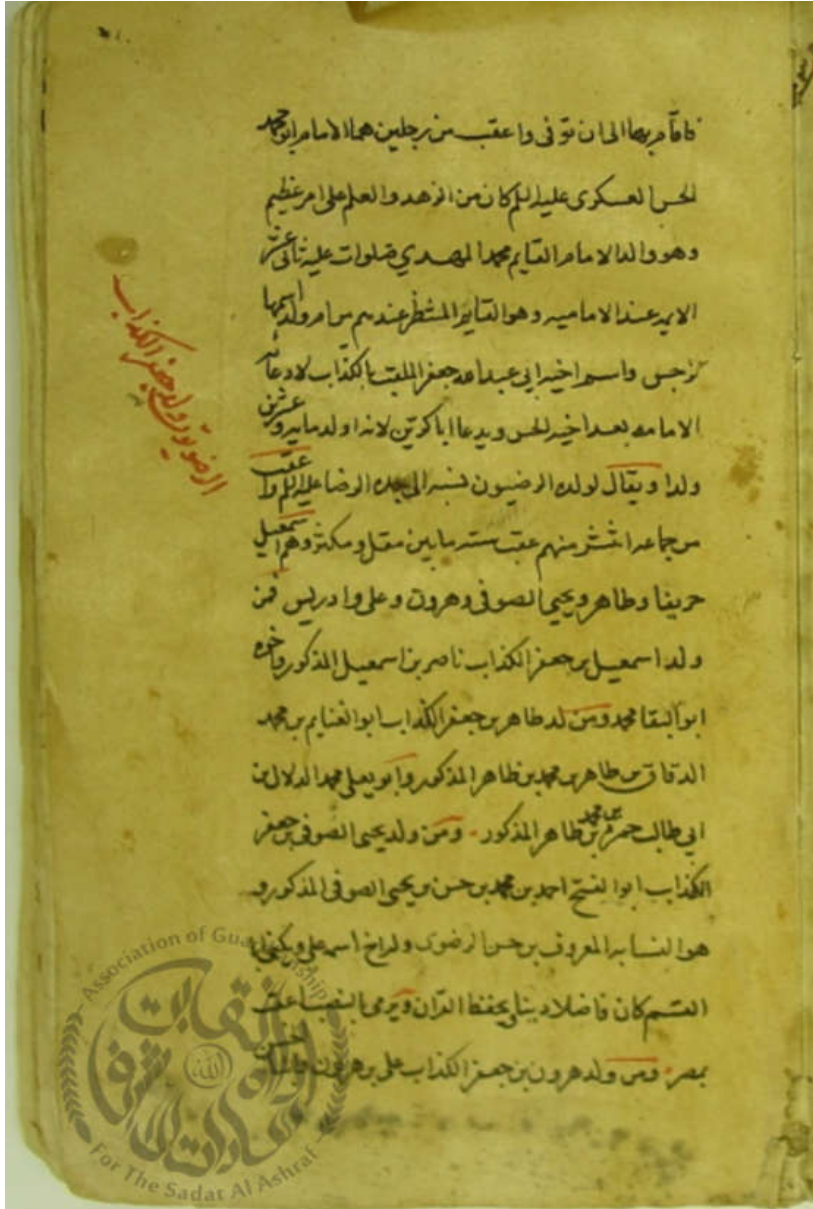 فاقام بها الى ان توفى واعقب من رجلين هما الامام ابو محمد
الحسن العسكرى عليه السلم كان من الزهد والعلم على امر عظيم
وهو والد الامام القايم محمد المهدي صلوات عليه ثانى عشر
الايمه عند الاماميه وهو القايم المنتظر عندهم من ام ولد اسمها
نرجس واسم اخيه ابى عبد الله جعفر الملقب بالكذاب لادعائه
الامامه بعد اخيه الحسن ويدعا ابا كرتين لانه اولد مايه وعشرين
ولدا ويقال لولده الرضيون نسبه الى جده الرضا عليه السلم واعقب
من جماعه انتشر منهم عقب سته ما بين مقل ومكثر وهم اسمعيل
حريفا وطاهر ويحيى الصوفى وهرون وعلى وادريس فمن
ولد اسمعيل بن جعفر الكذاب ناصر بن اسمعيل المذكور واخوه
ابو البقا محمد ومن لد طاهر بن جعفر الكذاب ابو الغنايم بن محمد
الدقاق بن طاهر بن محمد بن طاهر المذكور وابو يعلى محمد الدلال بن
ابى طالب حمزه بن محمد بن طاهر المذكور ومن ولد يحيى الصوفى بن جعفر
الكذاب ابو الفتح احمد بن محمد بن حسن بن يحيى الصوفى المذكور و
هو النسابه المعروف بن حسن الرضوى وله اخ اسمه على ويكنى ابا
القسم كان فاضلا دينا يحفظ القران ويرمى بالنصب اعقب
بمصر ومن ولد هرون بن جعفر الكذاب على بن هرون والحسن
الرضويون ولد جعفر الكذاب
Association of Guardianship
For The Sadat Al Ashraf